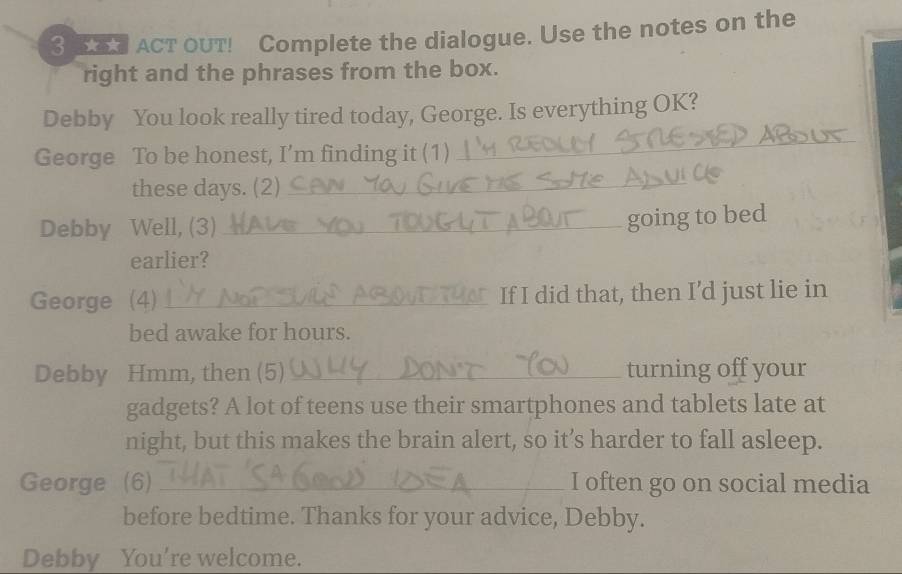 3 ★★ ACT OUT! Complete the dialogue. Use the notes on the
right and the phrases from the box.
Debby You look really tired today, George. Is everything OK?
George To be honest, I'm finding it (1) I'M REOLLY STRESSED ABOUT
these days. (2) CAN YOU GIVE ME SOME ADVICE
Debby Well, (3) HAVE YOU TOUGLT ABOUT going to bed
earlier?
George (4) I'M NOT SURE ABOUT THAT If I did that, then I'd just lie in
bed awake for hours.
Debby Hmm, then (5) WHY DON'T YOU turning off your
gadgets? A lot of teens use their smartphones and tablets late at
night, but this makes the brain alert, so it's harder to fall asleep.
George (6) THAT'S A GOOD IDEA I often go on social media
before bedtime. Thanks for your advice, Debby.
Debby You're welcome.